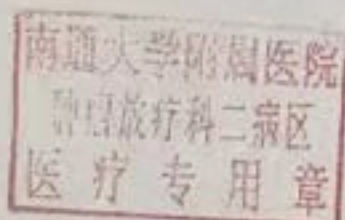 南通大学附属医院
肿瘤放疗科二病区
医疗专用章